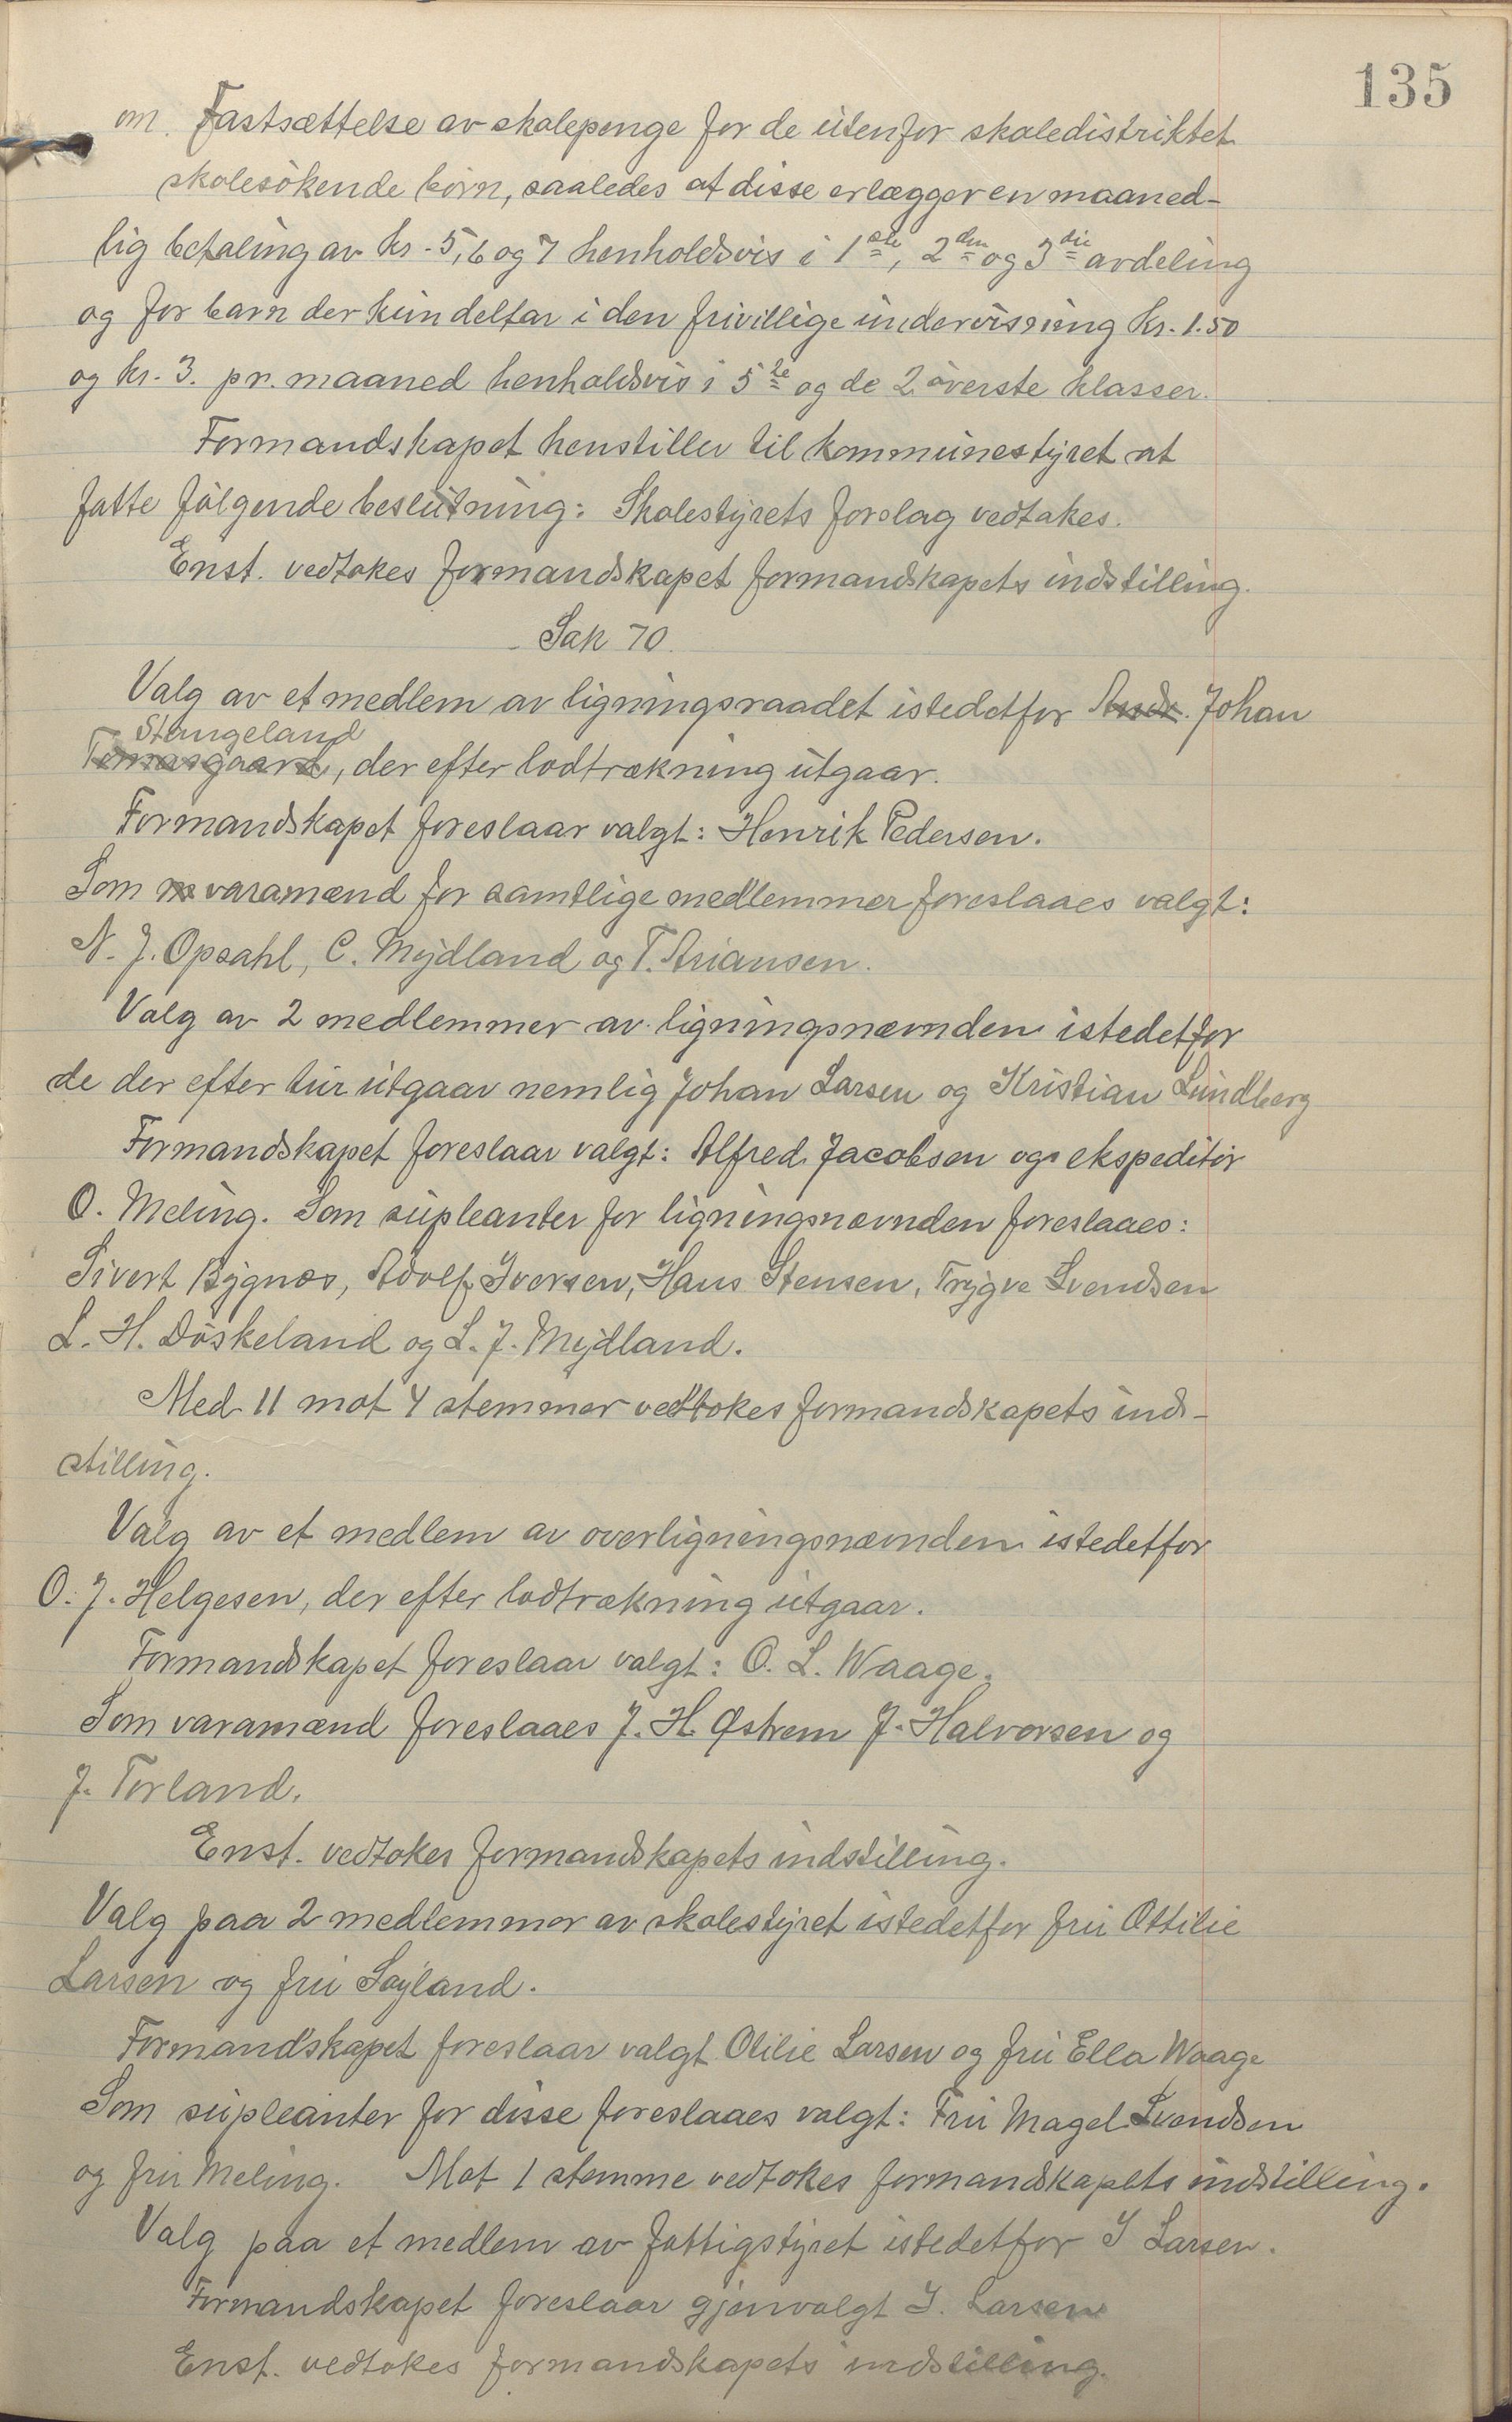 135
om. Fastsættelse av skolepenge for de utenfor skoledistriktet
skolesökende börn, saaledes at disse erlægger en maaned-
lig betaling av kr. 5, 6 og 7 henholdsvis i 1ste, 2den og 3die avdeling
og for barn der kun deltar i den frivillige undervisning kr. 1.50
og kr. 3. pr. maaned henholdsvis i 5te og de 2 överste klasser.
Formandskapet henstiller til kommunestyret at
fatte fölgende beslutning: Skolestyrets forslag vedtakes.
Enst. vedtokes formandskapet formandskapets indstilling.
Sak 70.
Valg av et medlem av ligningsraadet istedetfor Andr. Johan
Stangeland
Tomasgaard, der efter lodtrækning utgaar.
Formandskapet foreslaar valgt: Henrik Pedersen.
Som varamænd for samtlige medlemmer foreslaaes valgt:
N. J. Opsahl, C. Mydland og T. Ariansen.
Valg av 2 medlemmer av ligningsnævnden istedetfor
de der efter tur utgaar nemlig Johan Larsen og Kristian Lundberg
Formandskapet foreslaar valgt: Alfred Jacobsen og ekspeditör
O. Meling. Som supleanter for ligningsnævnden foreslaaes:
Sivert Bygnes, Adolf Iversen, Hans Stensen, Trygve Svendsen
L. H. Döskeland og L. J. Mydland.
Med 11 mot 4 stemmer vedtokes formandskapets ind-
stilling.
Valg av et medlem av overligningsnævnden istedetfor
O. J. Helgesen, der efter lodtrækning utgaar.
Formandskapet foreslaar valgt: O. L. Waage.
Som varamænd foreslaaes J. H. Østrem J. Halvorsen og
J. Torland.
Enst. vedtokes formandskapets indstilling.
Valg paa 2 medlemmer av skolestyret istedetfor fru Ottilie
Larsen og fru Søyland.
Formandskapet foreslaar valgt Otilie Larsen og fru Ella Waage
Som supleanter for disse foreslaaes valgt: Fru Magel Svendsen
og fru Meling. Mot 1 stemme vedtokes formandskapets indstilling.
Valg paa et medlem av fattigstyret istedetfor I Larsen.
Formandskapet foreslaar gjenvalgt I. Larsen
Enst. vedtokes formandskapets indstilling.